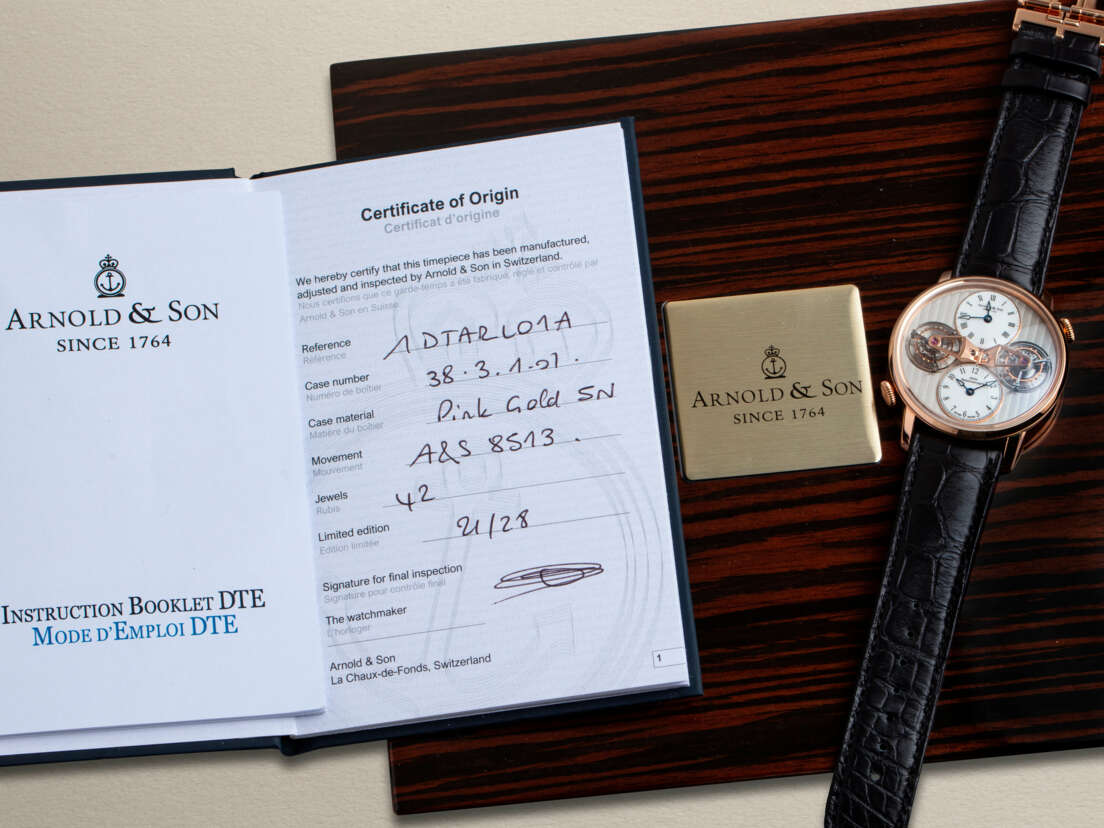 ARNOLD & SON
SINCE 1764
INSTRUCTION BOOKLET DTE
MODE D'EMPLOI DTE
Certificate of Origin
Certificat d'origine
We hereby certify that this timepiece has been manufactured,
adjusted and inspected by Arnold & Son in Switzerland.
Nous certifions que ce garde-temps a été fabriqué, réglé et contrôlé par
Arnold & Son en Suisse.
Reference 1DTARL01A
Référence
Case number 38.3.1.01.
Numéro de boîtier
Case material Pink Gold 5N
Matière du boîtier
Movement A&S 8513.
Mouvement
Jewels 42
Rubis
Limited edition 21/28
Edition limitée
Signature for final inspection
Signature pour contrôle final
The watchmaker
L'horloger
Arnold & Son
La Chaux-de-Fonds, Switzerland
1
ARNOLD & SON
SINCE 1764